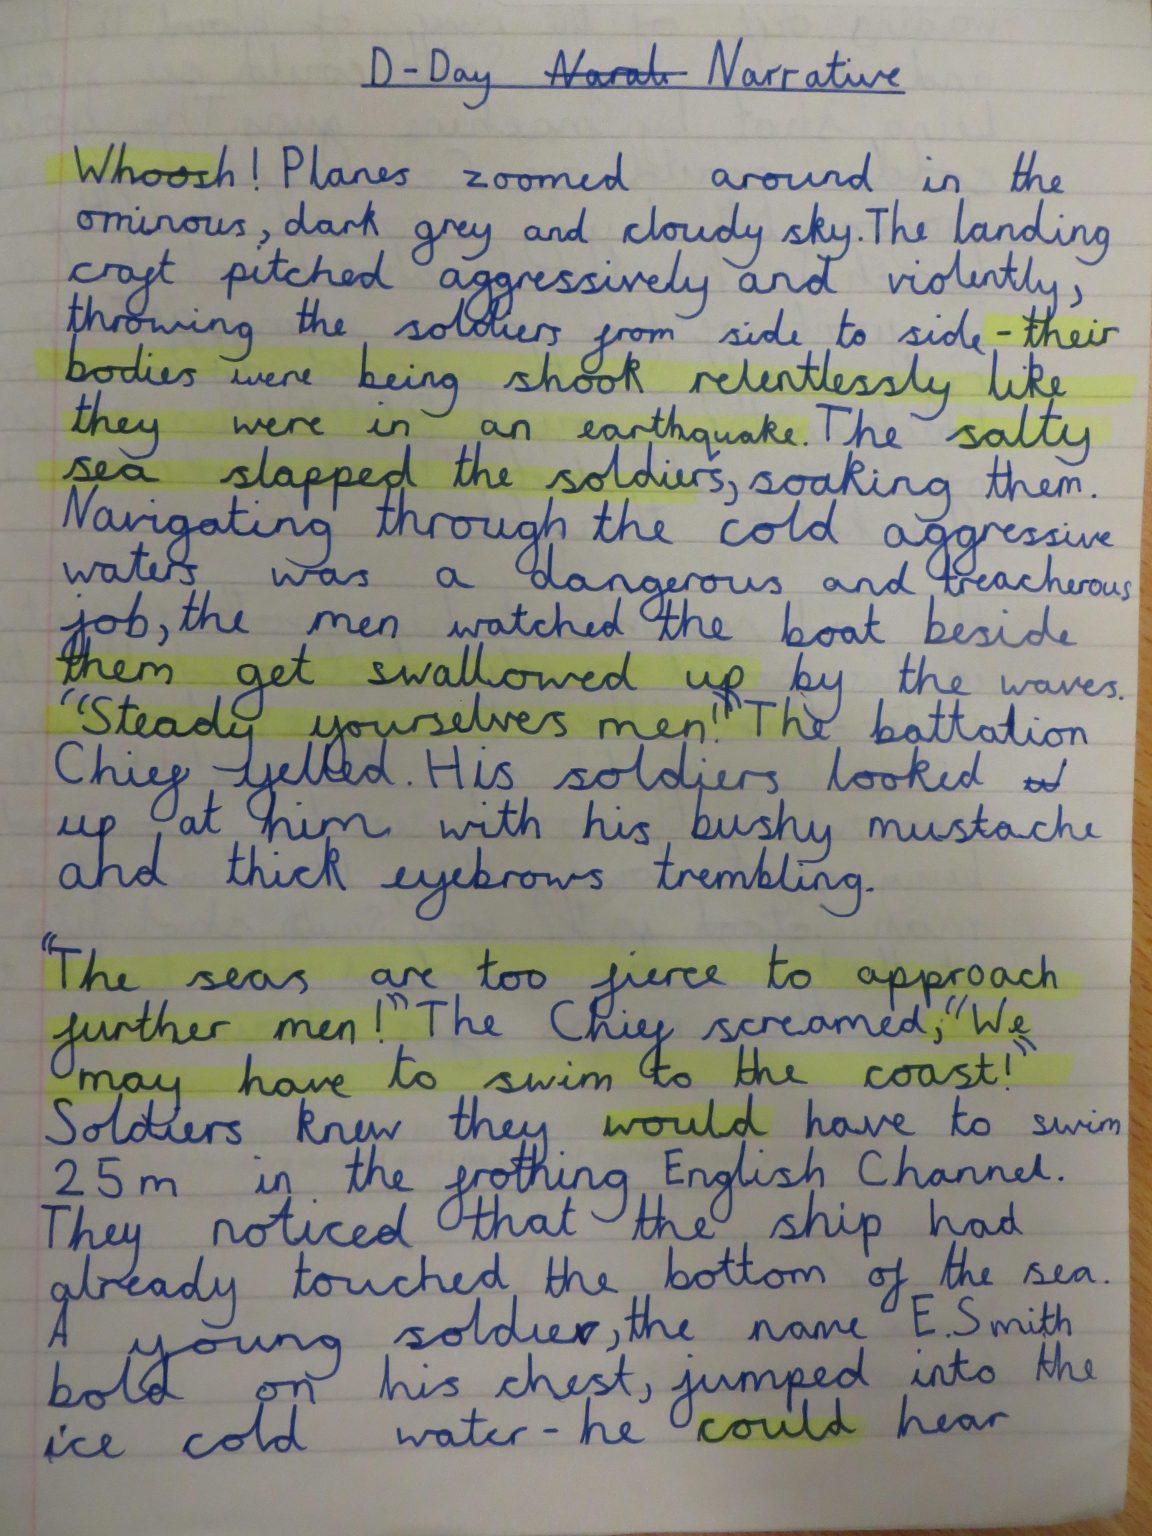 D-Day Narati Narrative
Whoosh! Planes zoomed around in the
ominous, dark grey and cloudy sky. The landing
craft pitched aggressively and violently,
throwing the soldiers from side to side - their
bodies were being shook relentlessly like
they were in an earthquake. The salty
sea slapped the soldiers, soaking them.
Navigating through the cold aggressive
waters was a dangerous and treacherous
job, the men watched the boat beside
them get swallowed up by the waves.
"Steady yourselves men!" The battation
Chief yelled. His soldiers looked
up at him with his bushy mustache
and thick eyebrows trembling.
"The seas are too fierce to approach
further men!" The Chief screamed; "We
may have to swim to the coast!"
Soldiers knew they would have to swim
25m in the frothing English Channel.
They noticed that the ship had
already touched the bottom of the sea.
A young soldier, the name E.Smith
bold on his chest, jumped into the
ice cold water - he could hear